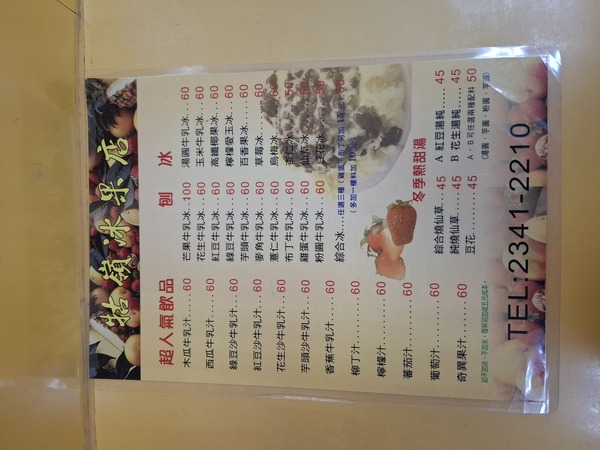 牯嶺冰果店
超人氣飲品
木瓜牛乳汁....60
西瓜牛乳汁....60
綠豆沙牛乳汁...60
紅豆沙牛乳汁...60
花生沙牛乳汁...60
芋頭沙牛乳汁...60
香蕉牛乳汁....60
柳丁汁......60
檸檬汁......60
蕃茄汁......60
葡萄汁......60
奇異果汁.....60
刨 冰
芒果牛乳冰..100
花生牛乳冰...60
紅豆牛乳冰...60
綠豆牛乳冰...60
芋頭牛乳冰...60
麥角牛乳冰...60
薏仁牛乳冰...60
布丁牛乳冰...60
雞蛋牛乳冰...60
粉圓牛乳冰...60
湯圓牛乳冰...60
玉米牛乳冰...60
高纖椰果冰...60
檸檬愛玉冰...60
百香果冰....60
草莓冰.....60
烏梅冰.....60
綜合冰...任選三種(雞蛋、布丁另加15元)
(多加一樣料加10元)
冬季熱甜湯
綜合燒仙草...45
純燒仙草....45
豆花......45
A 紅豆湯純....45
B 花生湯純....45
A、B可任選兩種配料 50
(湯圓、芋圓、粉圓、芋頭)
TEL:2341-2210